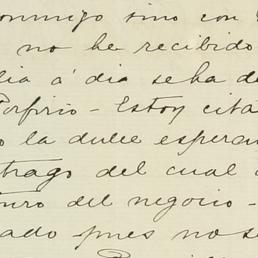 conmigo sino con
no he recibido
dia á dia se ha de
Porfirio - Estoy cita
la dulce esperan
trago del cual
turo del negocio -
ado pues no se